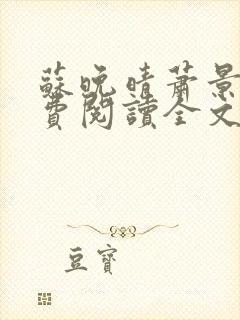 蘇晚晴蕭景
費閱讀全文
豆寶